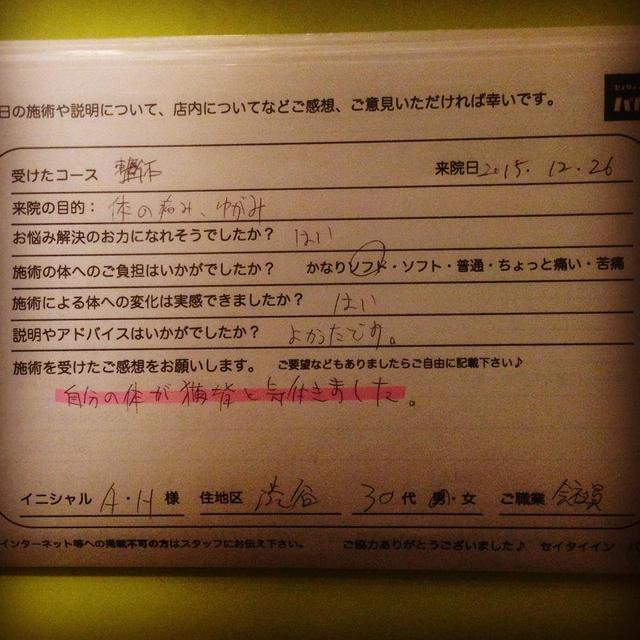 日の施術や説明について、店内についてなどご感想、ご意見いただければ幸いです。
受けたコース 整体 来院日 2015.12.26
来院の目的： 体の痛み、ゆがみ
お悩み解決のお力になれそうでしたか？ はい
施術の体へのご負担はいかがでしたか？ かなりソフト・ソフト・普通・ちょっと痛い・苦痛
施術による体への変化は実感できましたか？ はい
説明やアドバイスはいかがでしたか？ よかったです。
施術を受けたご感想をお願いします。 ご要望などもありましたらご自由に記載下さい♪
自分の体が猫背と気付きました。
イニシャル A・H 様 住地区 渋谷 30代 男・女 ご職業 会社員
インターネット等への掲載不可の方はスタッフにお伝え下さい。 ご協力ありがとうございました♪ セイタイイン